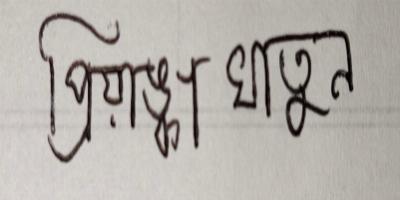 প্রিয়াঙ্কা খাতুন